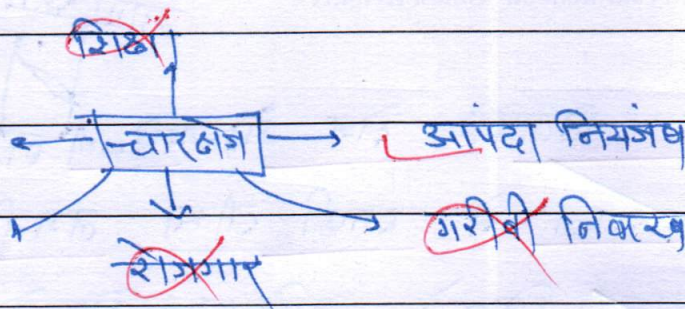 शिक्षा
चारलोग → आपदा नियंत्रण
गरीबी निवारण
रोजगार